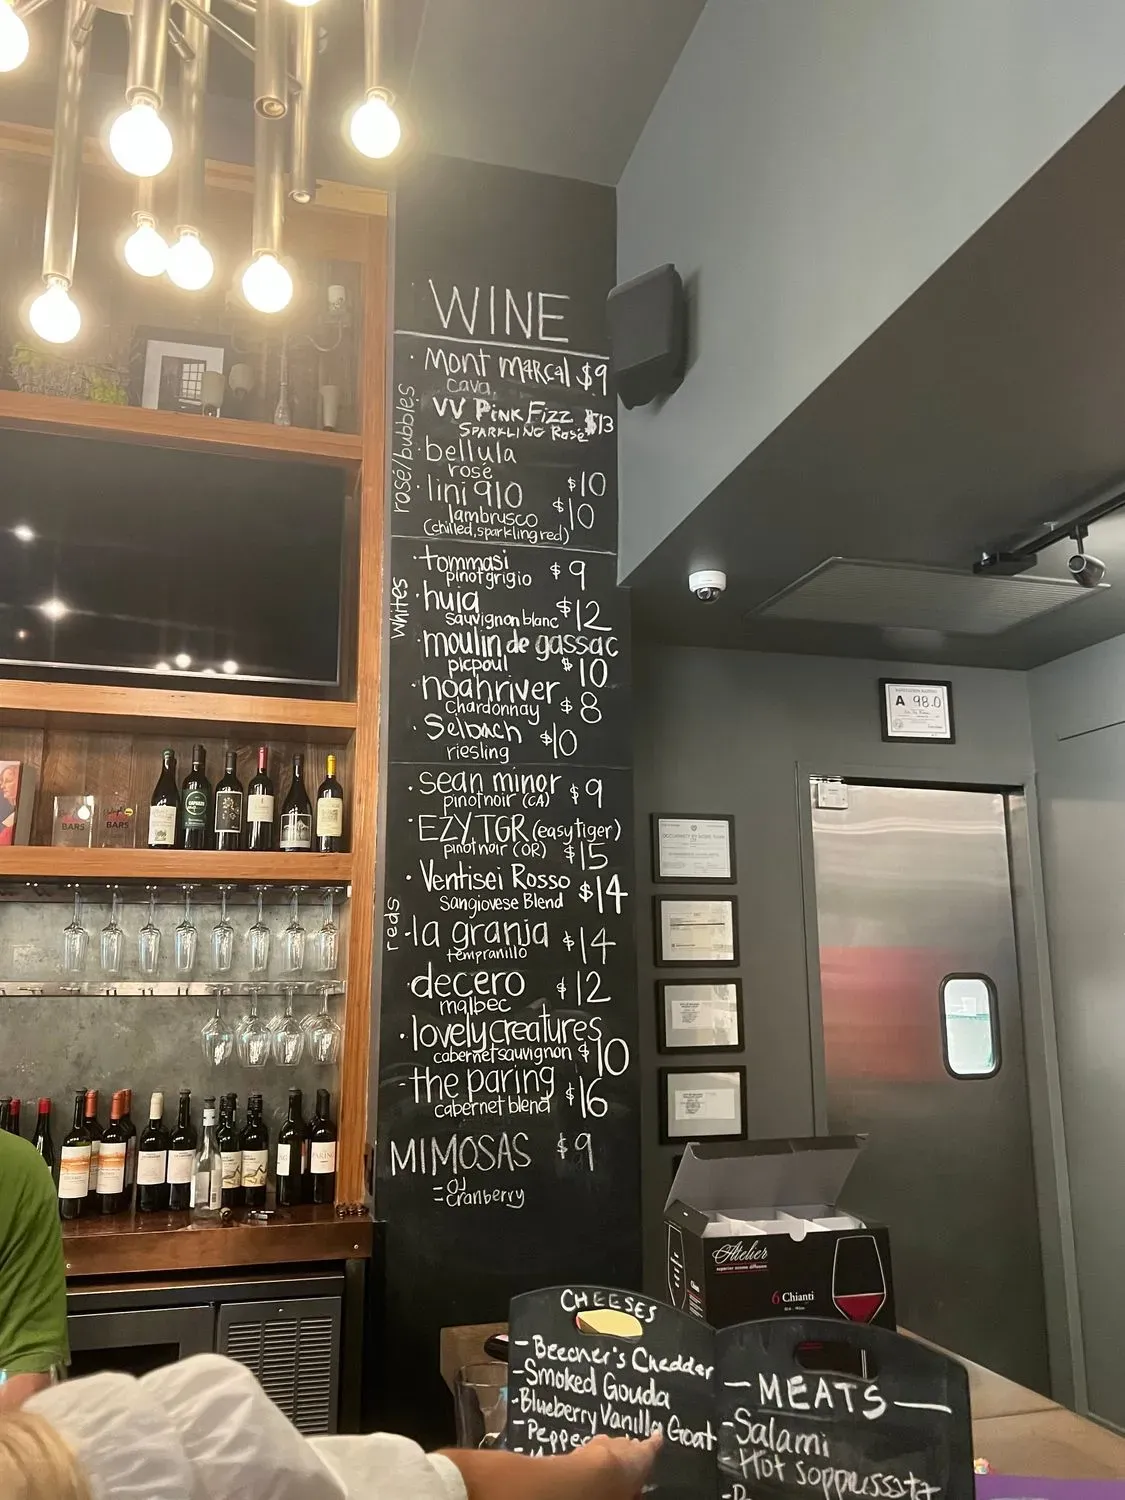 WINE
rosé/bubbles
· Mont Marcal $9
cava
VV PINK FIZZ $13
SPARKLING Rosé
· bellula
rosé $10
· lini 910
lambrusco $10
(chilled, sparkling red)
whites
· tommasi
pinot grigio $9
· huia
sauvignon blanc $12
· moulin de gassac
picpoul $10
· noah river
chardonnay $8
· Selbach
riesling $10
reds
· sean minor
pinot noir (CA) $9
· EZY TGR (easy tiger)
pinot noir (OR) $15
· Ventisei Rosso
Sangiovese Blend $14
· la granja
tempranillo $14
· decero
malbec $12
· lovely creatures
cabernet sauvignon $10
- the paring
cabernet blend $16
MIMOSAS $9
= OJ
cranberry
A 98.0
BARS
BARS
Atelier
6 Chianti
CHEESES
- Beecher's Cheddar
- Smoked Gouda
- Blueberry Vanilla Goat
— MEATS —
- Salami
- Hot Soppressata